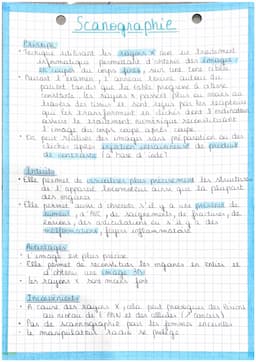 Scanographie
Principe
• Technique utilisant les rayons X avec un traitement
informatique permettant d'obtenir des images
en coupes du corps fines, sur une zone ciblée
• Pendant l'examen, l'anneau tourne autour du
patient tandis que la table progresse à vitesse
constante les rayons X passent plus ou moins au
travers des tissus et sont reçus par les récepteurs
qui les transforment en
le traitement numérique reconstituant
l'image du corps coupe après coupe
• On peut réaliser des images sans préparation ou des
clichés après injection intraveineuse de produit
de contraste (à base d'iode)
Intérêts
• Elle permet de visualiser plus précisément les structures
de l'appareil locomoteur ainsi que la plupart
des organes
• Elle permet aussi d'étudier s'il y a une présence de
tumeur, d'AVC, des saignements, de fractures, de
lésions, des
malformations, foyer inflammatoire
Avantages
• L'image est plus précise
• Elle permet de reconstituer les organes en entier et
d'obtenir une image 3D
• les rayons X sont moins forts
Inconvénients
• A cause des rayons X, cela peut provoquer des lésions
au niveau de l'ADN et des cellules (↗ cancers)
• Pas de scanographie pour les femmes enceintes
le manipulateur radio se protège